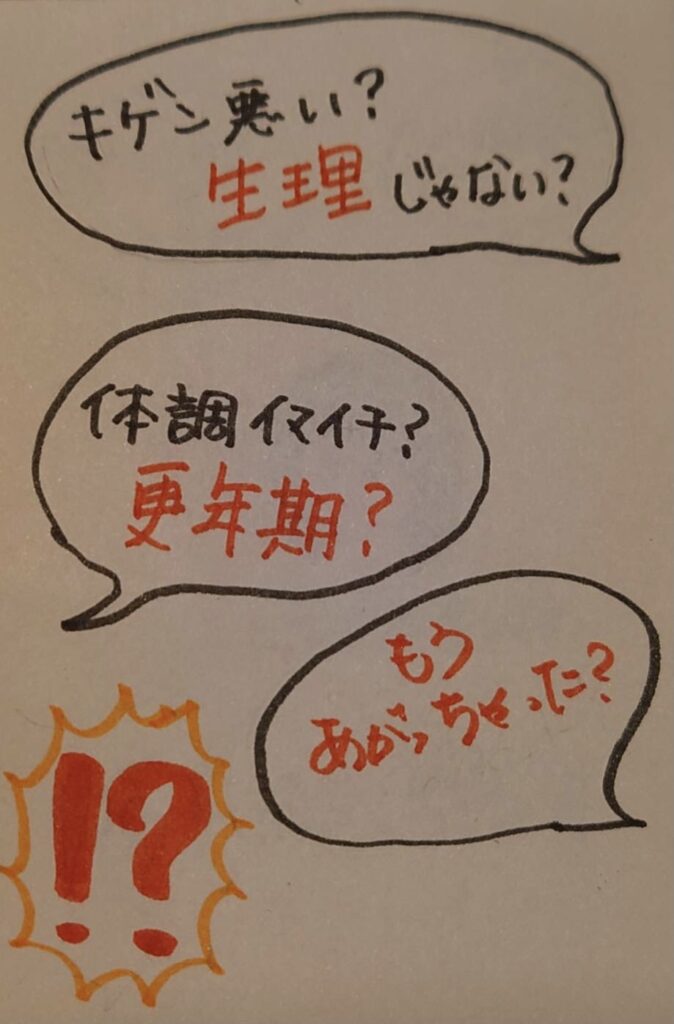 キゲン悪い?
生理じゃない?
体調イマイチ?
更年期?
もう
あがっちゃった?
!?